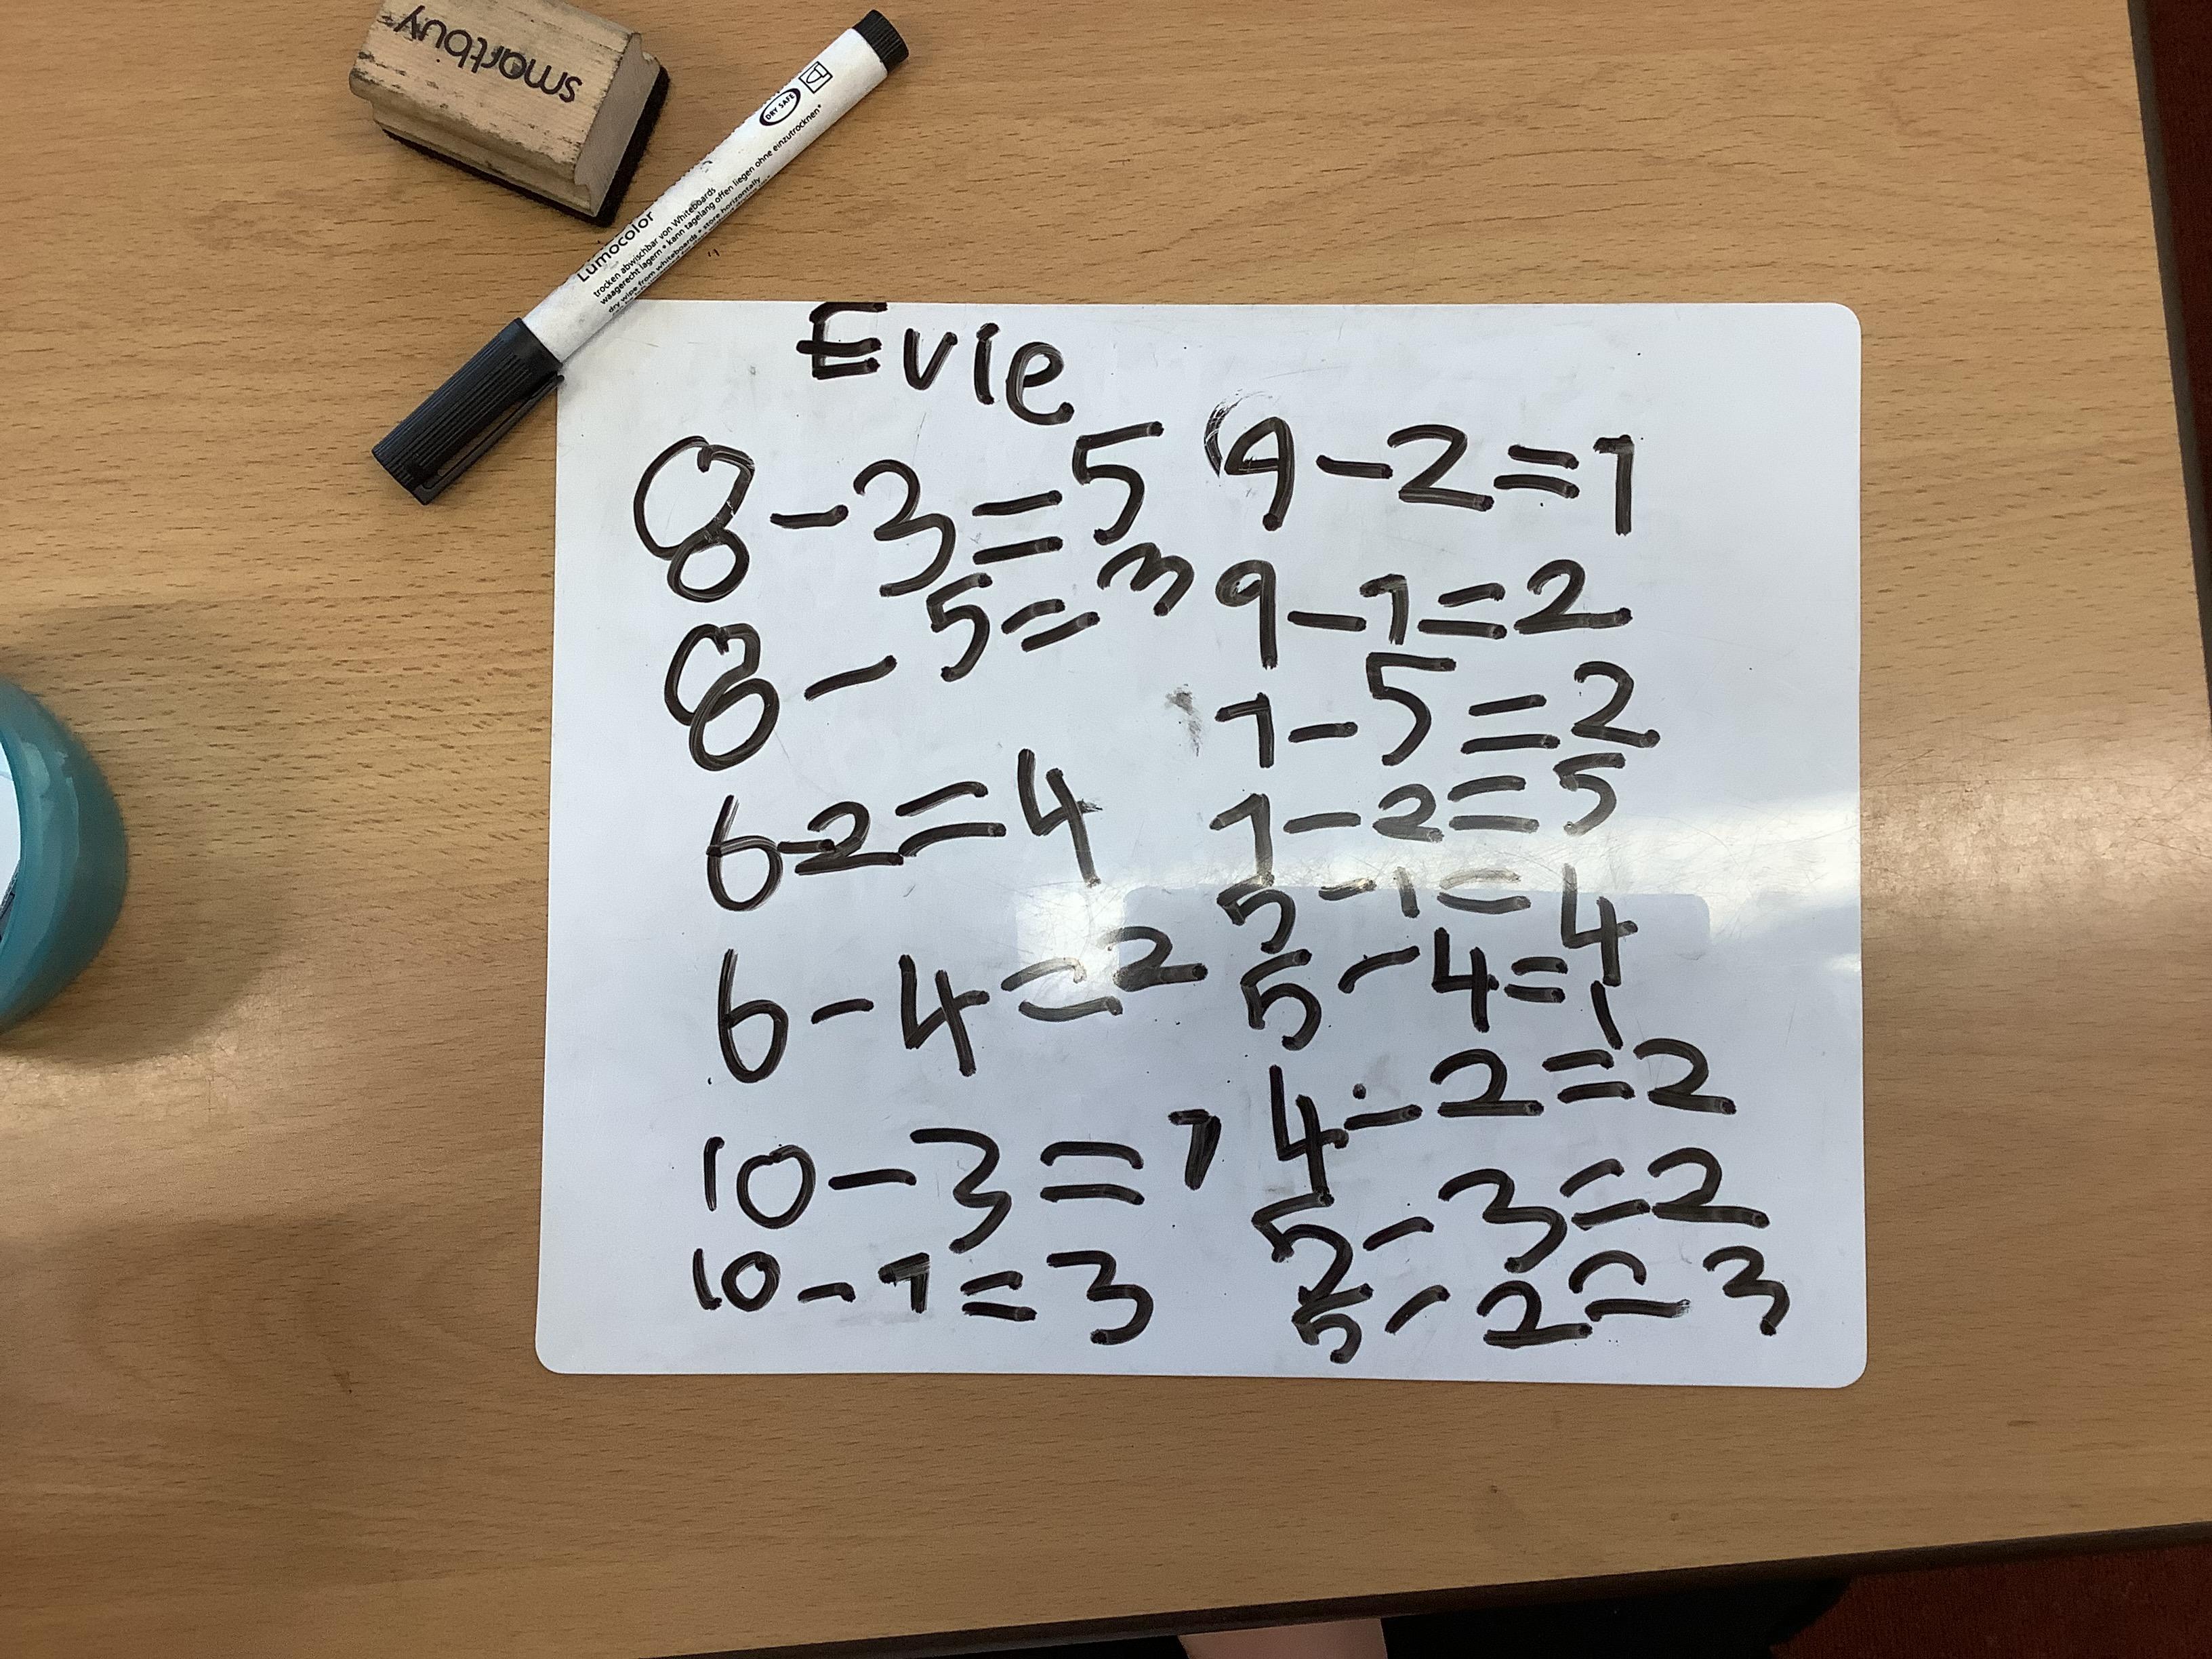 smartbuy
Lumocolor
DRY SAFE
trocken abwischbar von Whiteboards
waagerecht lagern • kann tagelang offen liegen ohne einzutrocknen*
dry wipe from whiteboards • store horizontally
Evie
8-3=5
8-5=3
6-2=4
6-4=2
10-3=7
10-7=3
9-2=7
9-7=2
7-5=2
7-2=5
5-1=4
5-4=1
4-2=2
5-3=2
5-2=3